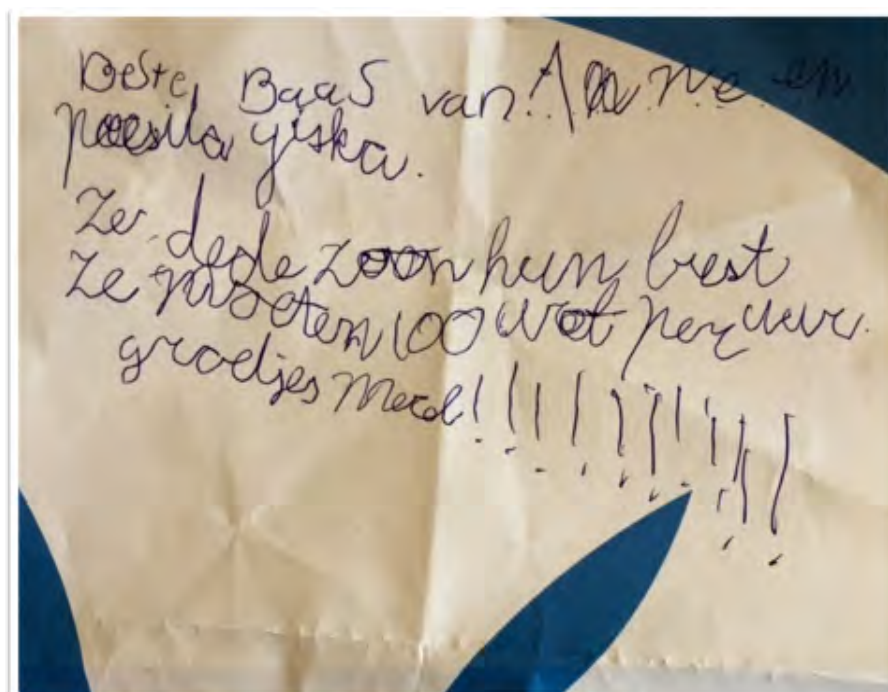 Beste Baas van Anne en
yiska.
Ze dede zoon hun best
Ze moeten 100 wot per uur.
groetjes Merel!!!!!!!!!!!